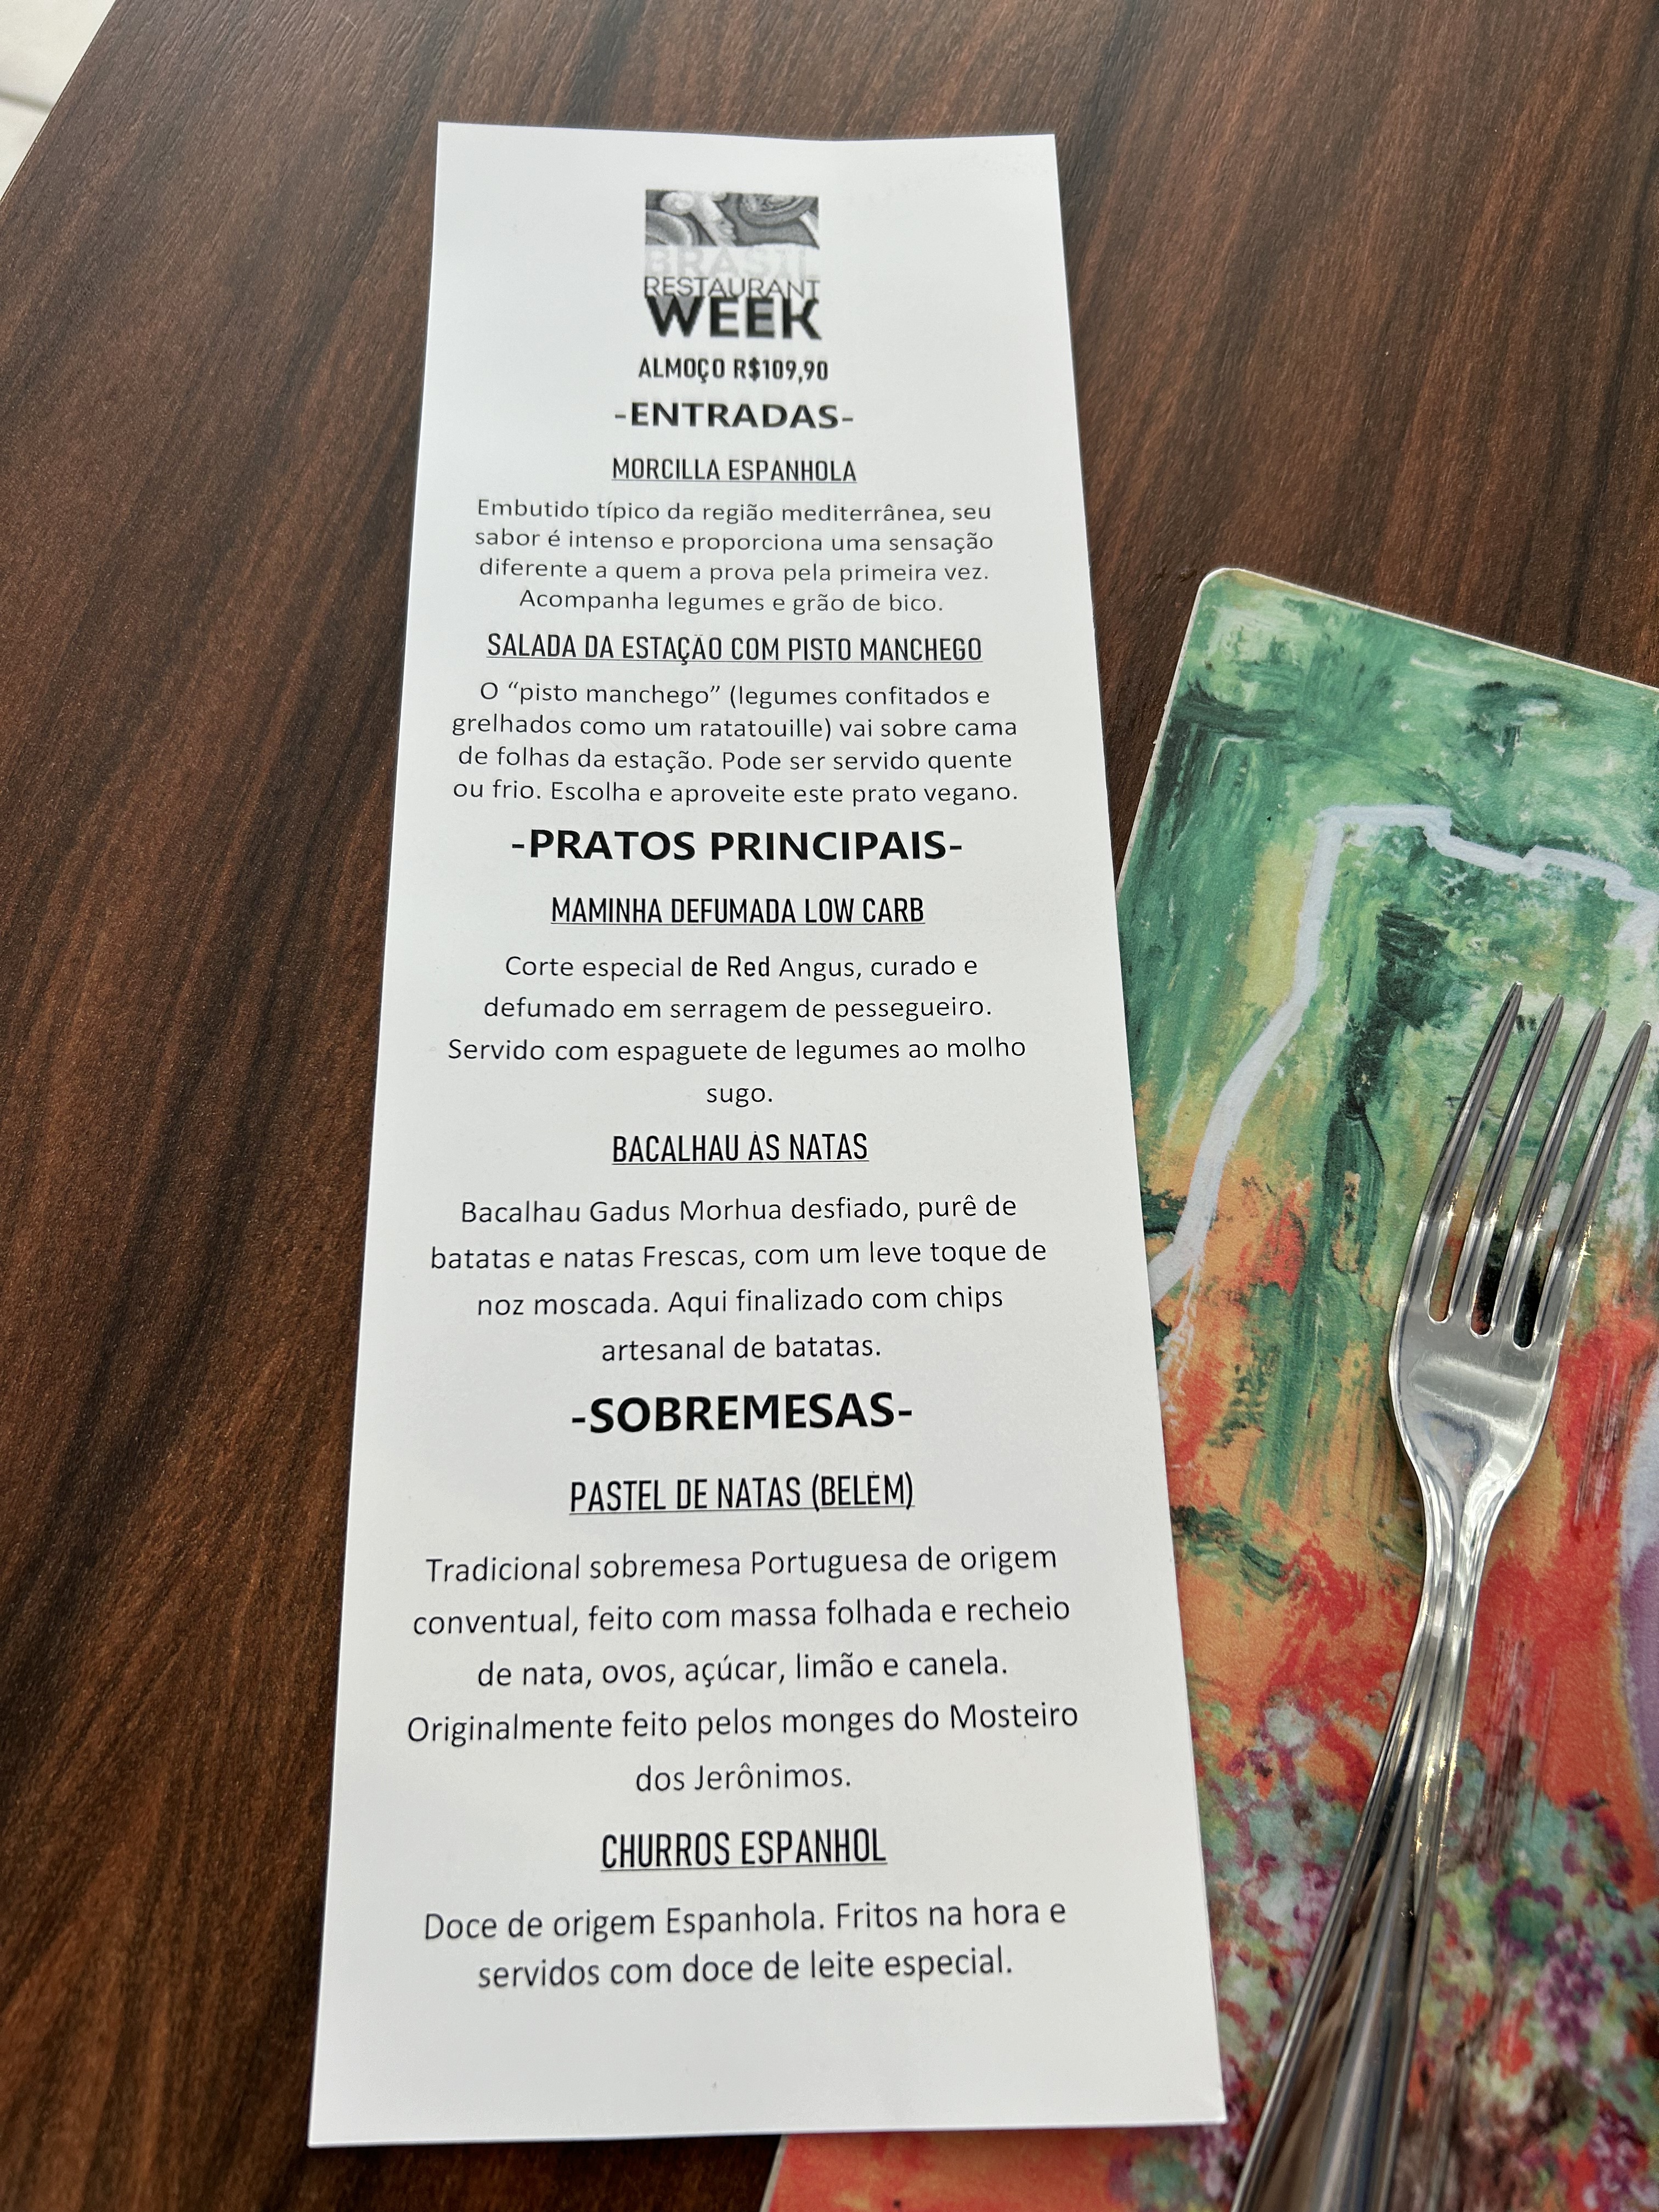 BRASIL
RESTAURANT
WEEK
ALMOÇO R$109,90
-ENTRADAS-
MORCILLA ESPANHOLA
Embutido típico da região mediterrânea, seu
sabor é intenso e proporciona uma sensação
diferente a quem a prova pela primeira vez.
Acompanha legumes e grão de bico.
SALADA DA ESTAÇÃO COM PISTO MANCHEGO
O “pisto manchego” (legumes confitados e
grelhados como um ratatouille) vai sobre cama
de folhas da estação. Pode ser servido quente
ou frio. Escolha e aproveite este prato vegano.
-PRATOS PRINCIPAIS-
MAMINHA DEFUMADA LOW CARB
Corte especial de Red Angus, curado e
defumado em serragem de pessegueiro.
Servido com espaguete de legumes ao molho
sugo.
BACALHAU ÀS NATAS
Bacalhau Gadus Morhua desfiado, purê de
batatas e natas Frescas, com um leve toque de
noz moscada. Aqui finalizado com chips
artesanal de batatas.
-SOBREMESAS-
PASTEL DE NATAS (BELÉM)
Tradicional sobremesa Portuguesa de origem
conventual, feito com massa folhada e recheio
de nata, ovos, açúcar, limão e canela.
Originalmente feito pelos monges do Mosteiro
dos Jerônimos.
CHURROS ESPANHOL
Doce de origem Espanhola. Fritos na hora e
servidos com doce de leite especial.